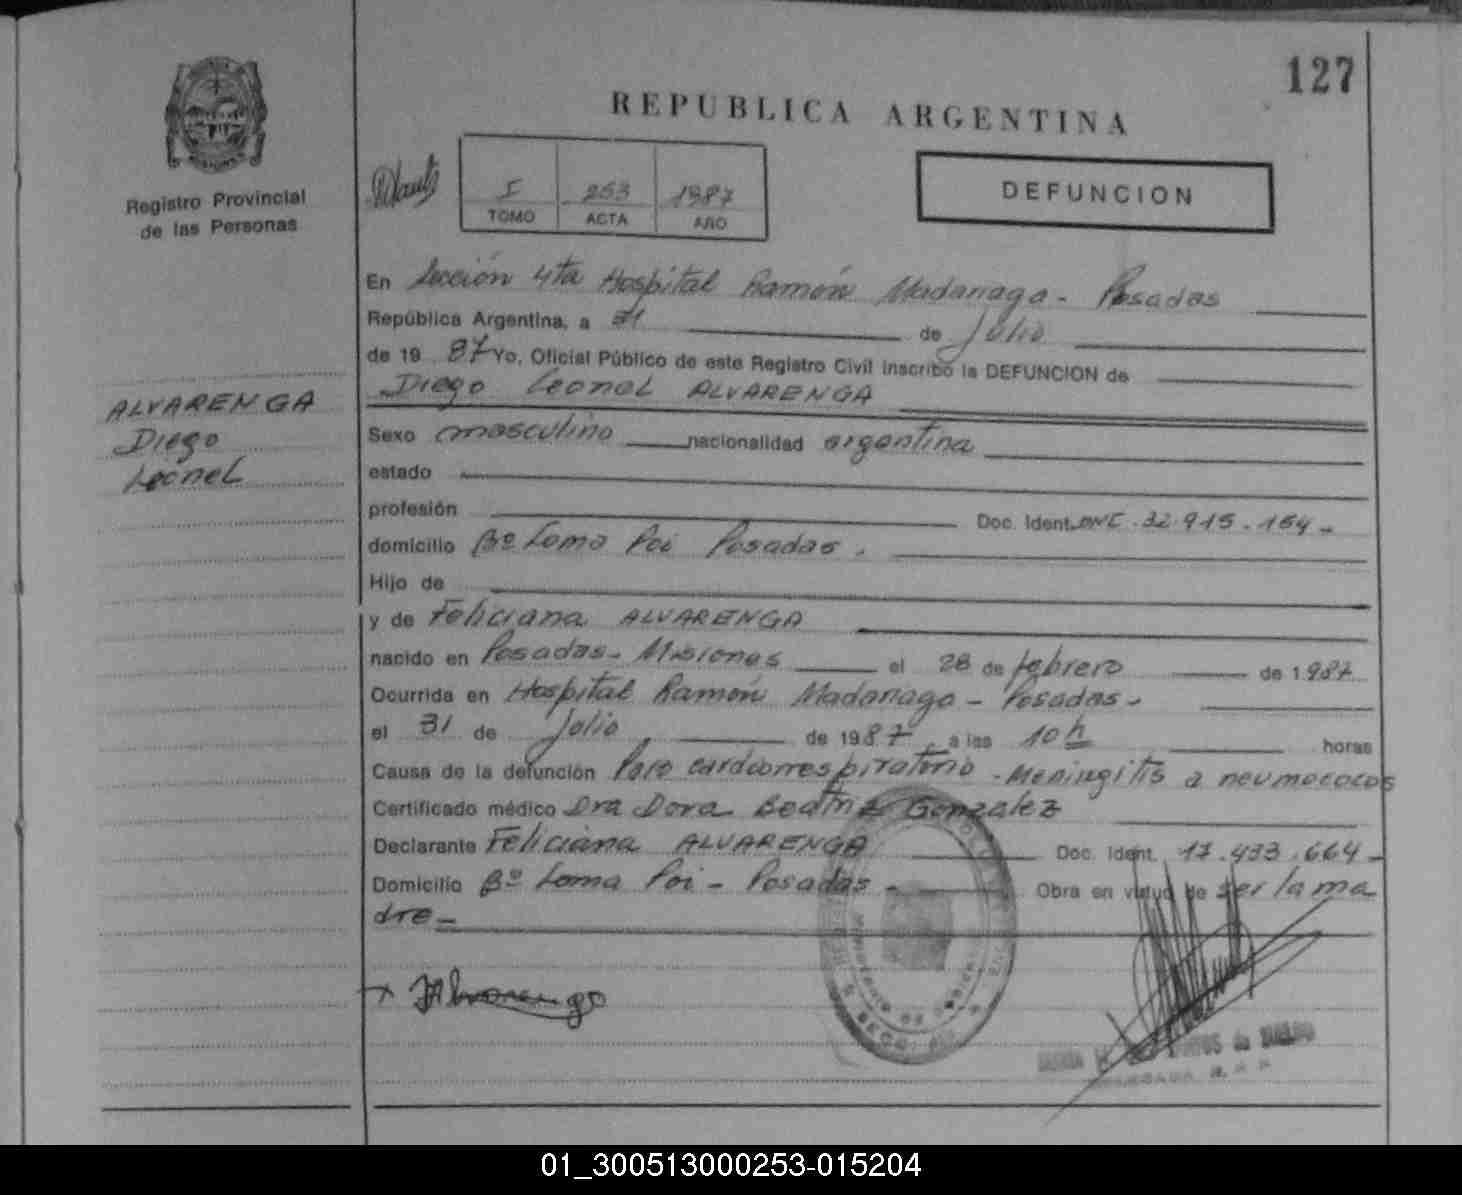 127
REPUBLICA ARGENTINA
Registro Provincial
de las Personas
I 253 1987
TOMO ACTA AÑO
DEFUNCION
En Sección 4ta Hospital Ramón Madariaga - Posadas
República Argentina, a 31 de Julio
de 19 87 Yo, Oficial Público de este Registro Civil inscribo la DEFUNCION de
Diego Leonel ALVARENGA
ALVARENGA
Diego
Leonel
Sexo masculino nacionalidad argentina
estado
profesión Doc. Ident. DNI. 32.915.154-
domicilio Bº Loma Poi Posadas.
Hijo de
y de Feliciana ALVARENGA
nacido en Posadas - Misiones el 28 de febrero de 1987
Ocurrida en Hospital Ramón Madariaga - Posadas -
el 31 de Julio de 1987, a las 10 h horas
Causa de la defunción Paro cardiorrespiratorio - Meningitis a neumococos
Certificado médico Dra Dora Beatriz Gonzalez
Declarante Feliciana ALVARENGA Doc. Ident. 17.433.664-
Domicilio Bº Loma Poi - Posadas - Obra en virtud de ser la ma
dre -
01_300513000253-015204